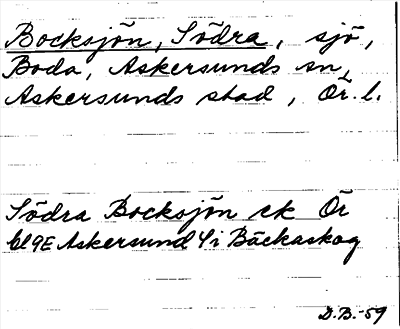 Bocksjön, Södra, sjö,
Boda, Askersunds sn,
Askersunds stad, Ör. l.
Södra Bocksjön ek Ör
bl9E Askersund 4i Bäckaskog
D.B.-59